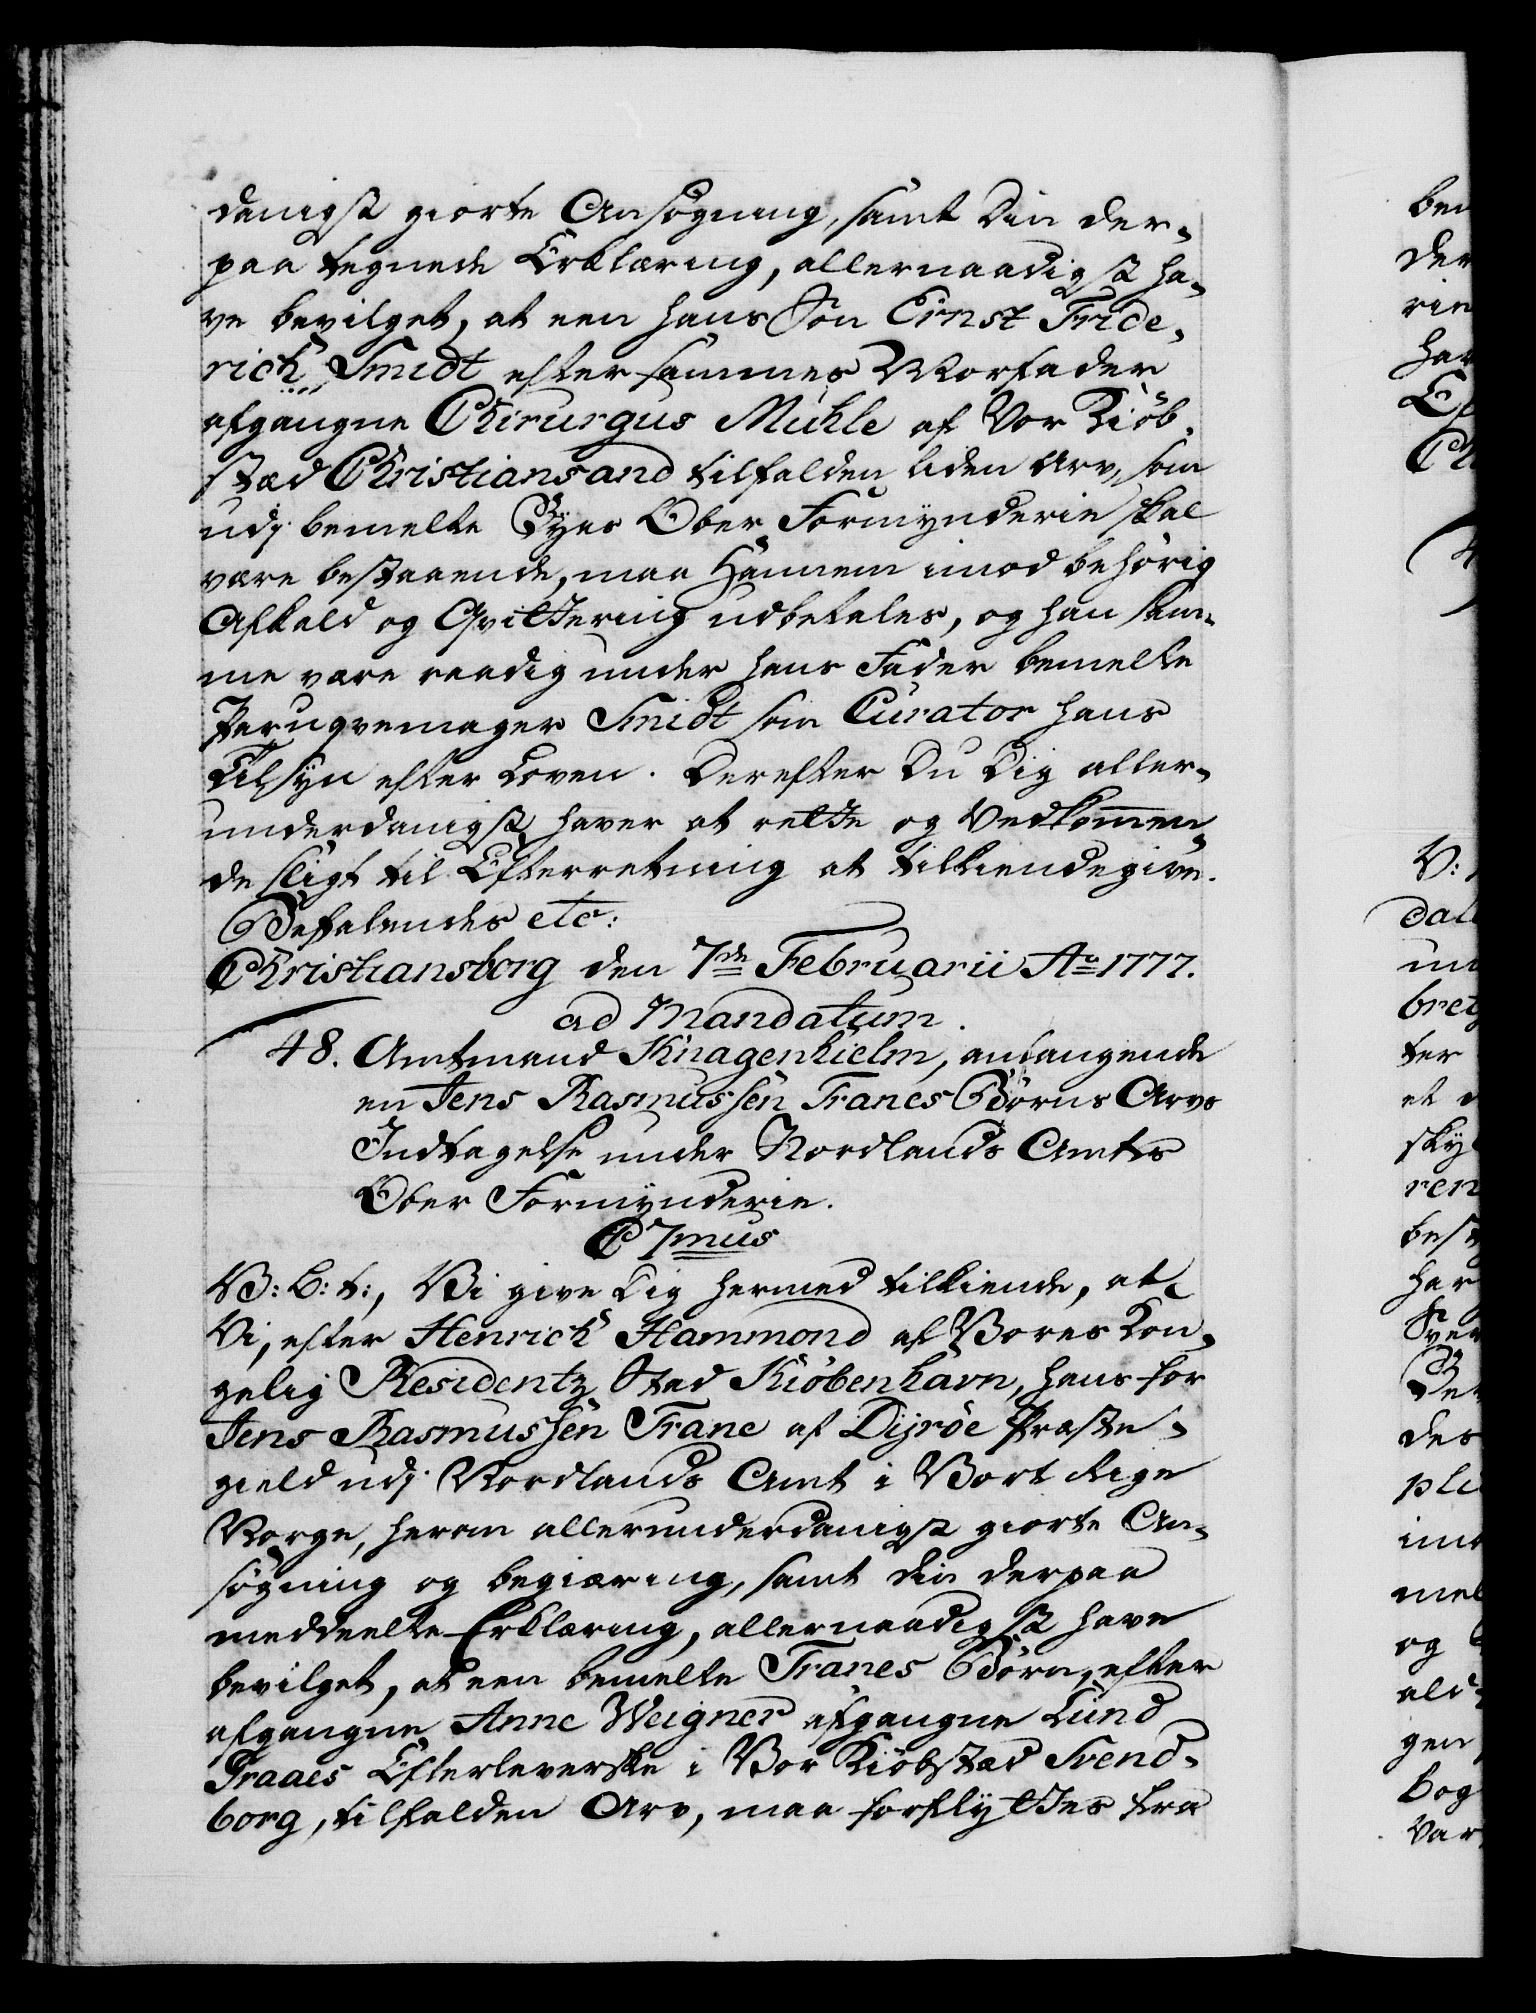 danigst giorte Ansøgning, samt Din der-
paa tegnede Erklæring, allernaadigst ha-
ve bevilget, at een hans Søn Ernst Fride-
rich Smidt efter sammes Morfader
afgangne Chirurgus Mühle af Vor Kiöb-
stæd Christiansand tilfalden liden Arv, som
udj bemelte Byes Ober Formynderie skal
være bestaaende, maa Hannem imod behörig
Afkald og Qvittering udbetales, og han sam-
me være raadig under hans Fader bemelte
Paruqvemager Smidt som Curator hans
Tilsyn efter Loven. Derefter Du Dig aller-
underdanigst haver at rette og Vedkommen-
de sligt til Efterretning at tilkiendegive.
Befalendes etc:
Christiansborg den 7de Februarii Ao 1777.
ad Mandatum.
48. Amtmand Knagenhielm, anlangende
en Jens Rasmussen Tranes Børns Arvs
Indtagelse under Nordlands Amts
Ober Formynderie.
C 7mus
V: G: t:, Vi give Dig hermed tilkiende, at
Vi, efter Henrich Hammond af Vores Kon-
gelig Residentz Stad Kiöbenhavn, hans for
Jens Rasmussen Trane af Dijröe Præste-
gield udj Nordlands Amt i Vort Rige
Norge, herom allerunderdanigst giorte An-
søgning og begiæring, samt din derpaa
meddeelte Erklæring, allernaadigst have
bevilget, at een bemelte Tranes Børn, efter
afgangne Anne Weigner afgangne Lund
Praaes Efterleverske i Vor Kiöbstæd Svend-
borg, tilfalden Arv, maa forflyttes fra